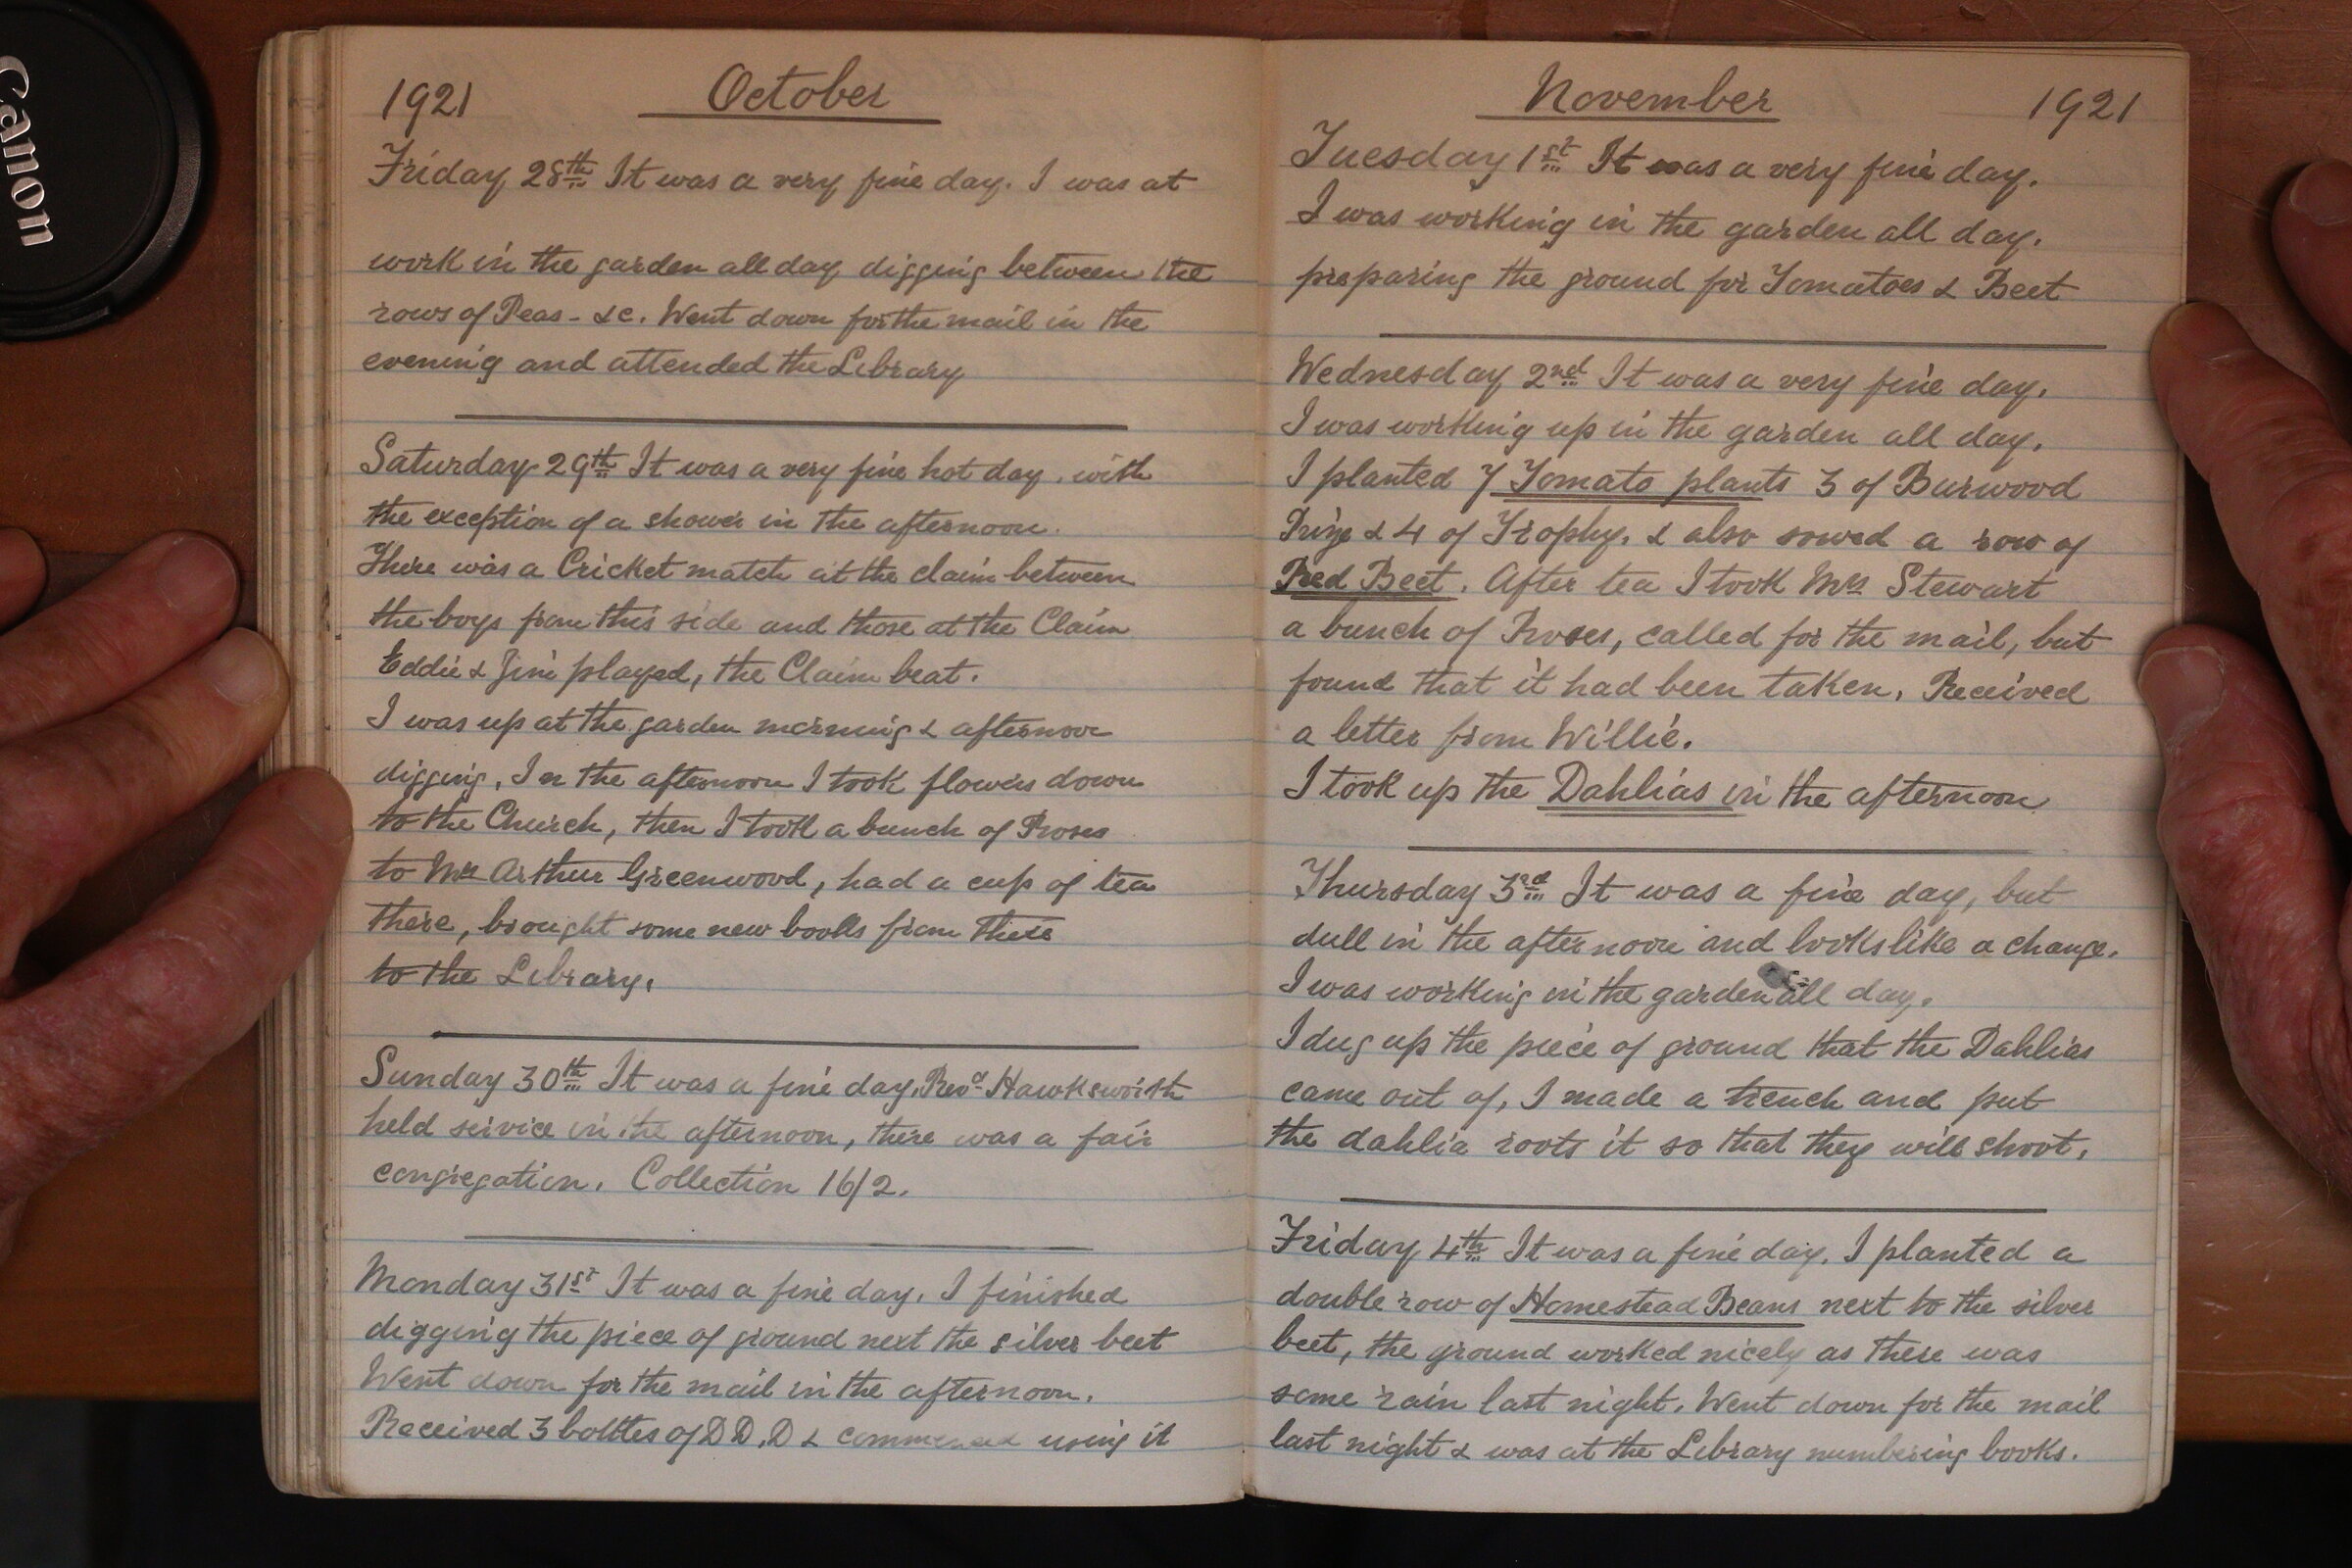 Canon
1921 October
Friday 28th It was a very fine day. I was at
work in the garden all day digging between the
rows of Peas - &c. Went down for the mail in the
evening and attended the Library
Saturday 29th It was a very fine hot day, with
the exception of a shower in the afternoon.
There was a Cricket match at the claim between
the boys from this side and those at the Claim
Eddie & Jim played, the Claim beat.
I was up at the garden morning & afternoon
digging, In the afternoon I took flowers down
to the Church, then I took a bunch of Roses
to Mrs Arthur Greenwood, had a cup of tea
there, brought some new books from there
to the Library.
Sunday 30th It was a fine day. Revd Hawksworth
held service in the afternoon, there was a fair
congregation. Collection 16/2.
Monday 31st It was a fine day, I finished
digging the piece of ground next the silver beet
Went down for the mail in the afternoon.
Received 3 bottles of D.D.D & commenced using it
November 1921
Tuesday 1st It was a very fine day.
I was working in the garden all day.
preparing the ground for Tomatoes & Beet
Wednesday 2nd It was a very fine day.
I was working up in the garden all day.
I planted 7 Tomato plants 3 of Burwood
Prize & 4 of Trophy. & also sowed a row of
Red Beet. After tea I took Mrs Stewart
a bunch of Roses, called for the mail, but
found that it had been taken. Received
a letter from Willie.
I took up the Dahlias in the afternoon
Thursday 3rd It was a fine day, but
dull in the afternoon and looks like a change.
I was working in the garden all day.
I dug up the piece of ground that the Dahlias
came out of, I made a trench and put
the dahlia roots it so that they will shoot.
Friday 4th It was a fine day. I planted a
double row of Homestead Beans next to the silver
beet, the ground worked nicely as there was
some rain last night. Went down for the mail
last night & was at the Library numbering books.